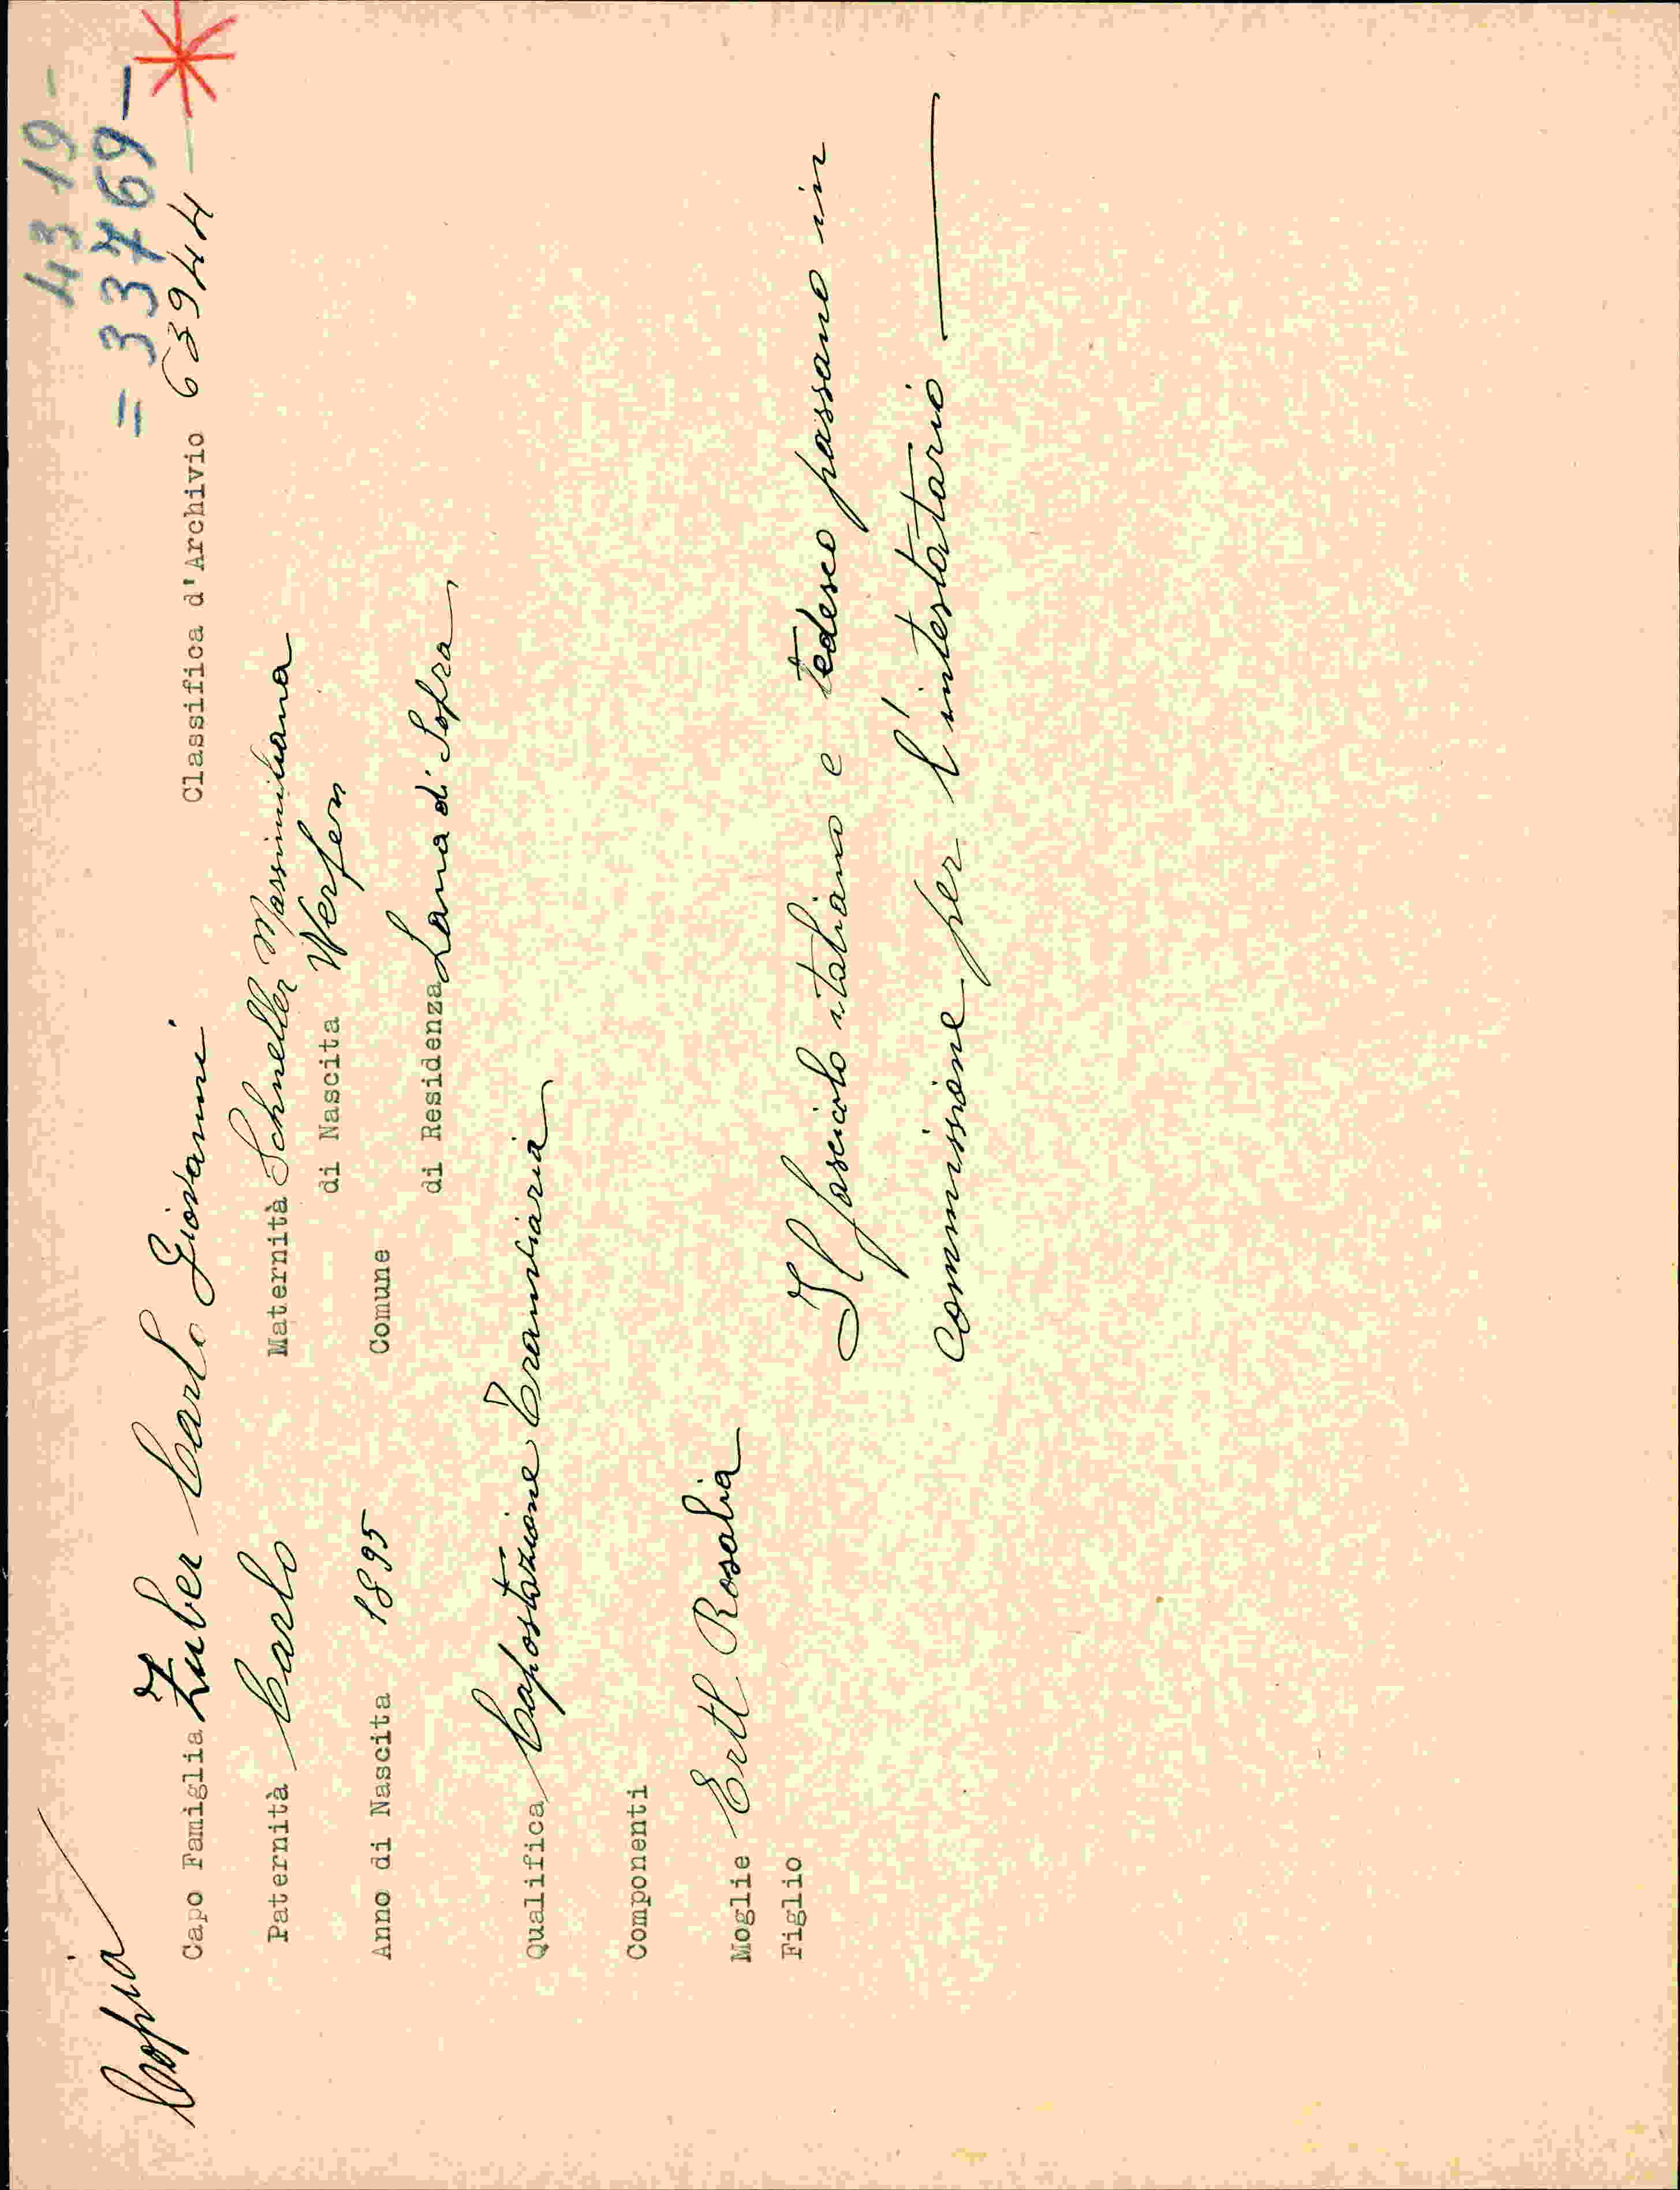 Copia
43 19 -
= 33769 -
Capo Famiglia Zuber Carlo Giovanni Classifica d'Archivio 63944
Paternità Carlo Maternità Schneller Massimiliana
di Nascita Werfen
Anno di Nascita 1895 Comune
di Residenza Lana di Sopra
Qualifica Capostazione Tranviaria
Componenti
Moglie Ertl Rosalia
Figlio
Il fascicolo italiano e tedesco passano in
commissione per l'intestatario